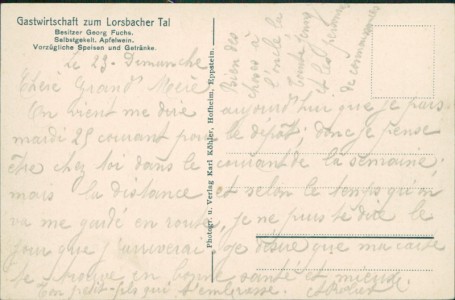 Gastwirtschaft zum Lorsbacher Tal
Besitzer Georg Fuchs.
Selbstgekelt. Apfelwein.
Vorzügliche Speisen und Getränke.
Photogr. u. Verlag Karl Köhler, Hofheim, Eppstein.
Le 23 - Dimanche
Chère Grand Mère
On vient me dire aujourd'hui que je pars
mardi 25 courant pour le dépôt; donc je pense
être chez toi dans le courant de la semaine;
mais la distance et selon le temps qu'on
va me garder en route, je ne puis te dire le
jour que j'arriverai. Je désire que ma carte
te trouve en bonne santé et
Ton petit-fils qui t'embrasse.
Bien des
choses à
l'oncle la
tante
et les personnes
de connaissances